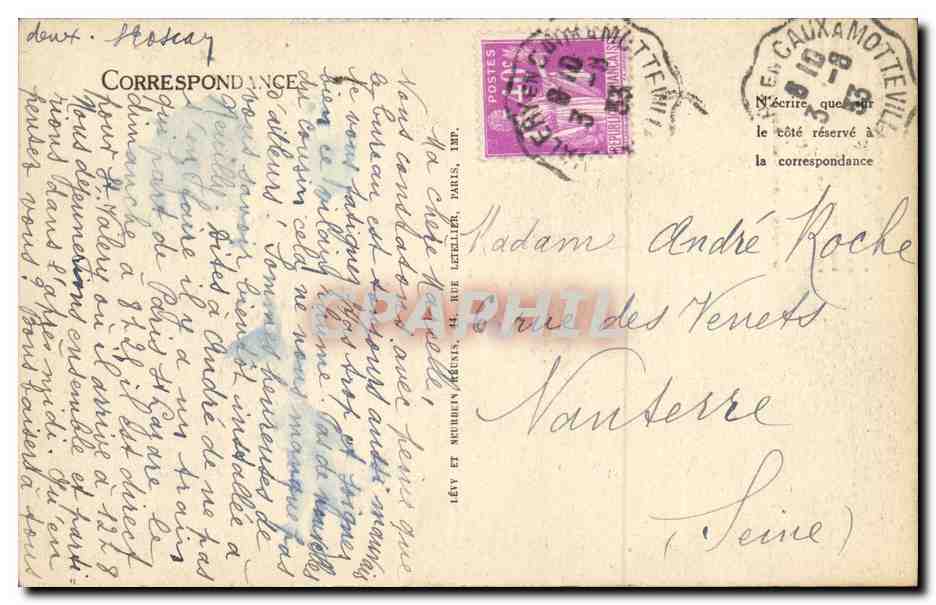 deux.
CORRESPONDANCE
Ma chère Marcelle,
Nous constatons avec peine que
le bureau est toujours aussi mauvais
je vous fatiguez pas trop et soignez
bien ce vilain rhume. Pas de nouvelles
du cousin cela ne nous manque pas
d'ailleurs. Sommes heureuses de
vous savoir bientôt installée à
Neuilly. Dites à André de ne pas
s'en faire il y a un train
qui part de Paris St Lazare le
dimanche à 8 h 2 il est direct
pour St Valery où il arrive à 12 h 8
Nous déjeunerions ensemble et parti=
rions dans l'après midi. Qu'en
pensez vous? Bons baisers à tous
LÉVY ET NEURDEIN RÉUNIS, 44, RUE LETELLIER, PARIS, IMP.
POSTES
REPUBLIQUE FRANÇAISE
VALERY EN CAUX A MOTTEVILLE
8 10
3 -8
33
EN CAUX A MOTTEVILLE
8 10
3 -8
33
N'écrire que sur
le côté réservé à
la correspondance
Madame André Roche
6 rue des Venets
Nanterre
(Seine)
CPARPHIL